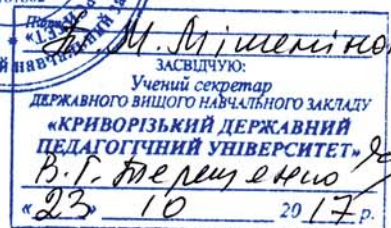 Підпис
Т. М. Мішеніної
ЗАСВІДЧУЮ:
Учений секретар
ДЕРЖАВНОГО ВИЩОГО НАВЧАЛЬНОГО ЗАКЛАДУ
«КРИВОРІЗЬКИЙ ДЕРЖАВНИЙ
ПЕДАГОГІЧНИЙ УНІВЕРСИТЕТ»
В. Г. Терещенко
«23» 10 2017 р.